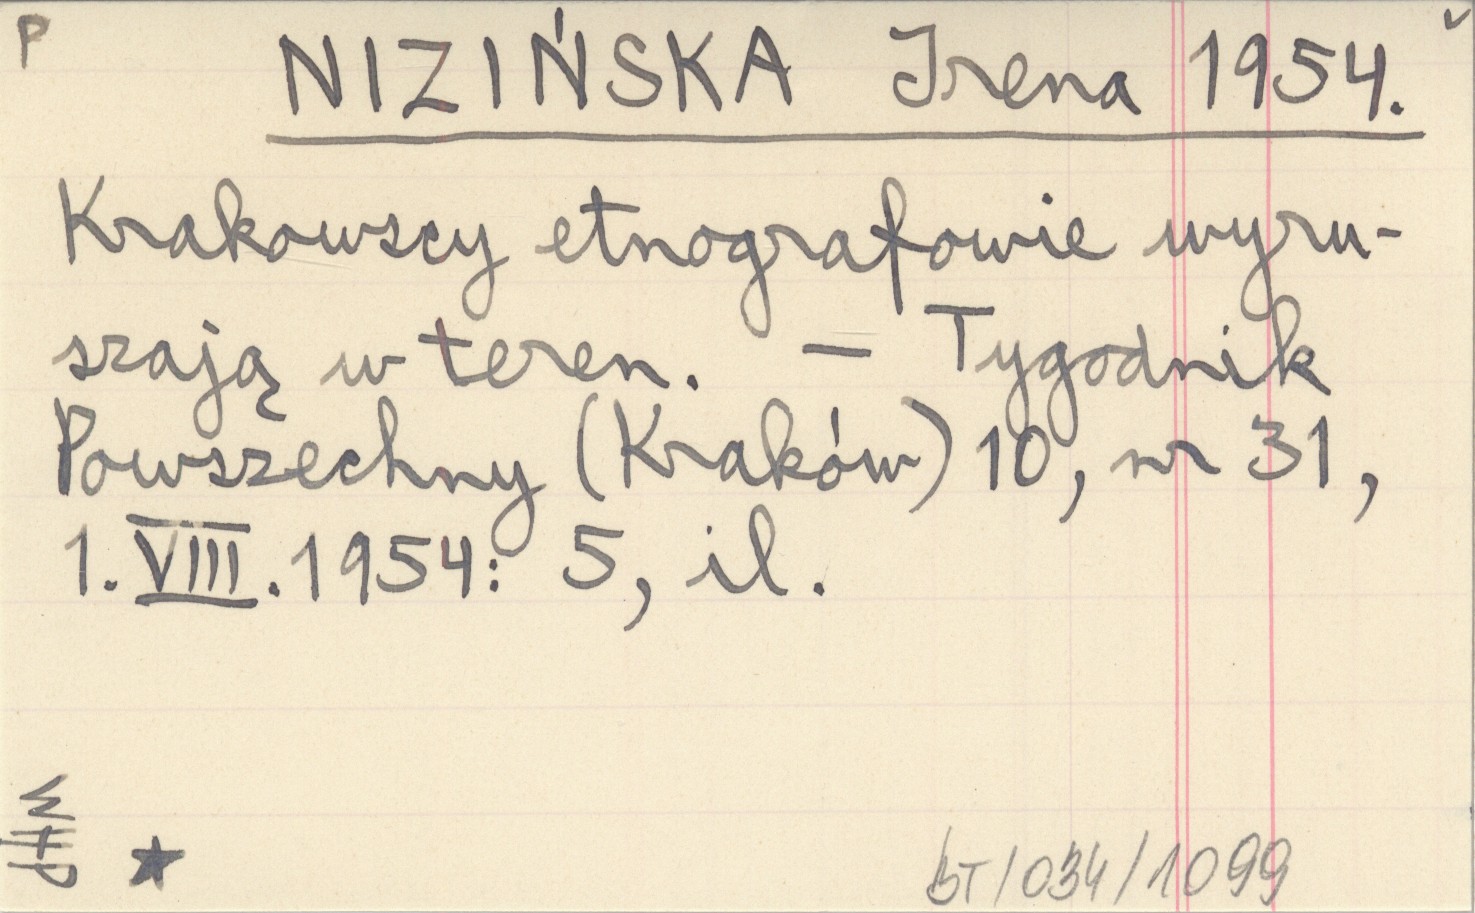 P
NIZIŃSKA Irena 1954.
Krakowscy etnografowie wyru-
szają w teren. – Tygodnik
Powszechny (Kraków) 10, nr 31,
1.VIII.1954: 5, il.
★
BT/034/1099